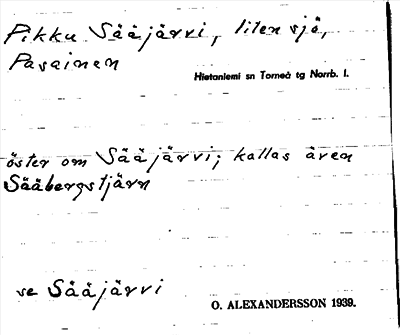 Pikku Sääjärvi, liten sjö,
Pasainen
Hietaniemi sn Torneå tg Norrb. l.
öster om Sääjärvi; kallas även
Sääbergstjärn
se Sääjärvi
O. ALEXANDERSSON 1939.